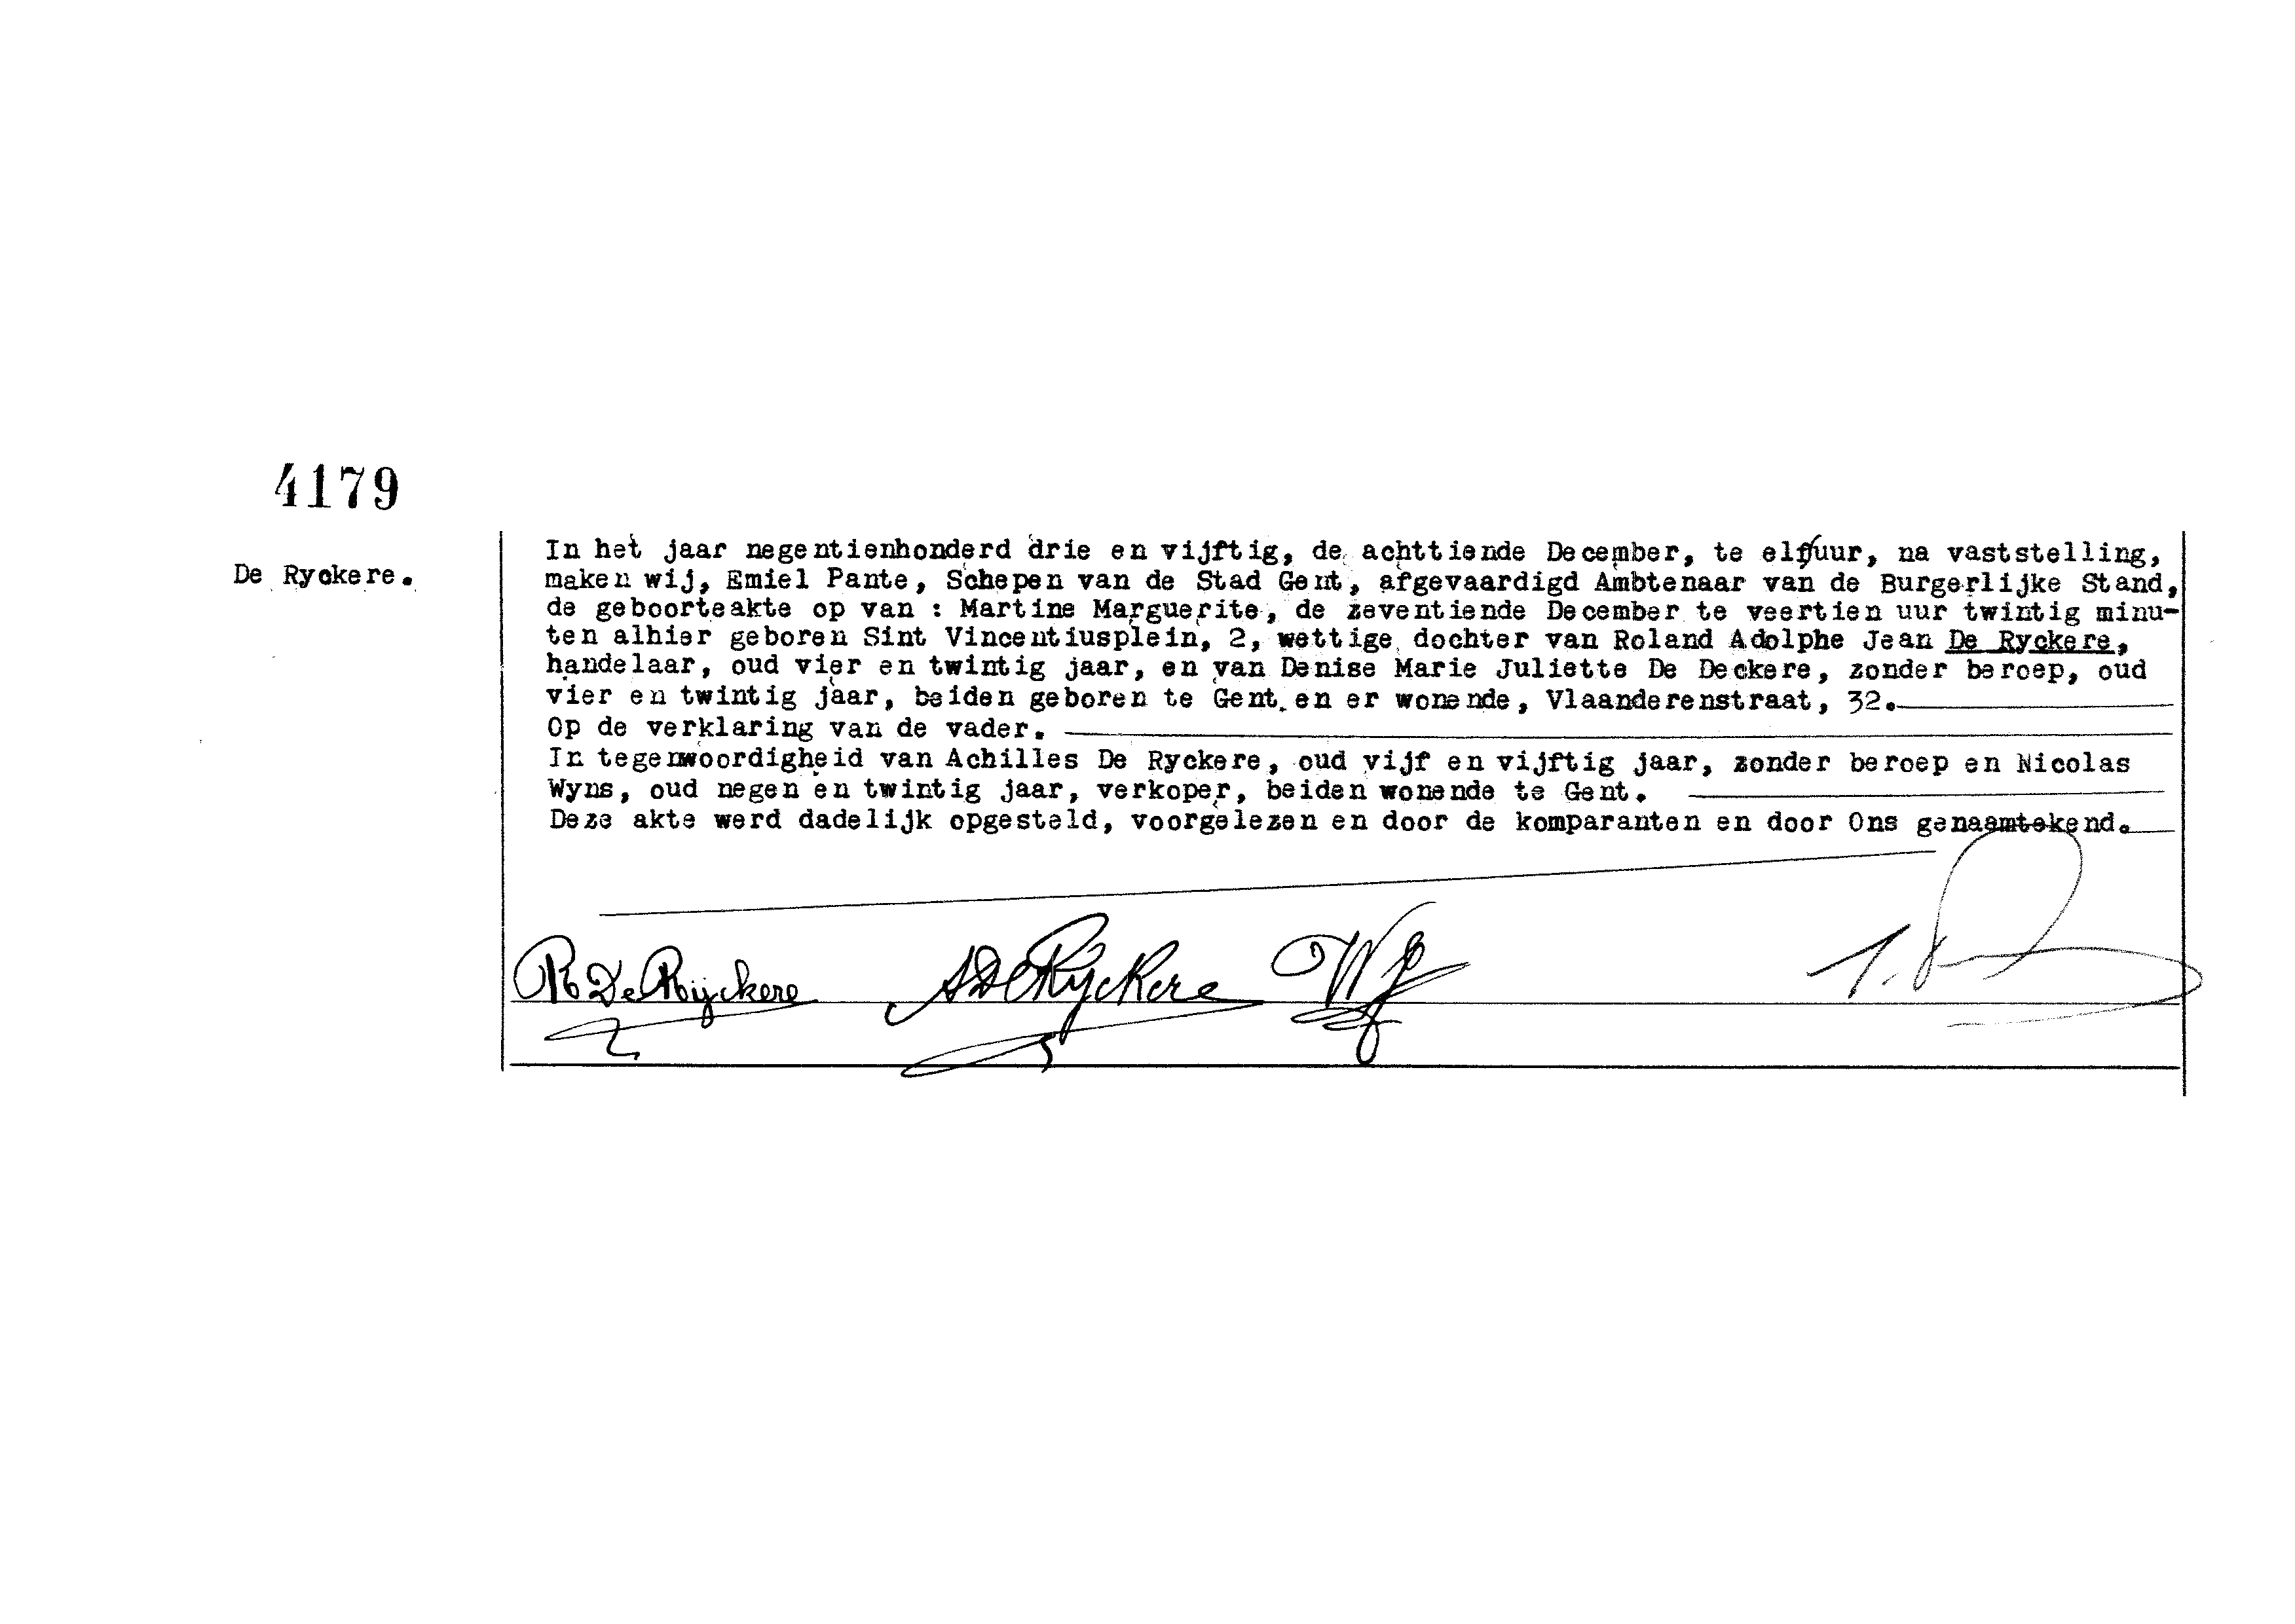 4179
De Ryckere.
In het jaar negentienhonderd drie en vijftig, de achttiende December, te elf uur, na vaststelling,
maken wij, Emiel Pante, Schepen van de Stad Gent, afgevaardigd Ambtenaar van de Burgerlijke Stand,
de geboorteakte op van : Martine Marguerite, de zeventiende December te veertien uur twintig minu-
ten alhier geboren Sint Vincentiusplein, 2, wettige dochter van Roland Adolphe Jean De Ryckere,
handelaar, oud vier en twintig jaar, en van Denise Marie Juliette De Deckere, zonder beroep, oud
vier en twintig jaar, beiden geboren te Gent en er wonende, Vlaanderenstraat, 32.
Op de verklaring van de vader.
In tegenwoordigheid van Achilles De Ryckere, oud vijf en vijftig jaar, zonder beroep en Nicolas
Wyns, oud negen en twintig jaar, verkoper, beiden wonende te Gent.
Deze akte werd dadelijk opgesteld, voorgelezen en door de komparanten en door Ons genaamtekend.
R De Rijckere ADeRyckere